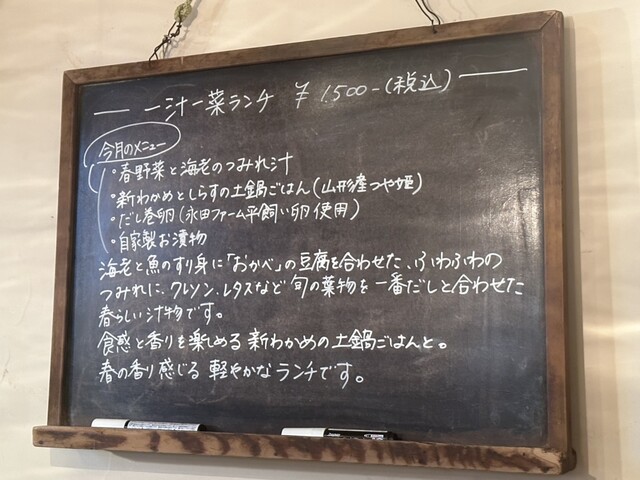 一汁一菜ランチ ¥1,500-(税込)
今月のメニュー
・春野菜と海老のつみれ汁
・新わかめとしらすの土鍋ごはん(山形産つや姫)
・だし巻卵(永田ファーム平飼い卵使用)
・自家製お漬物
海老と魚のすり身に「おかべ」の豆腐を合わせた、ふわふわの
つみれに、クレソン、レタスなど旬の葉物を一番だしと合わせた
春らしい汁物です。
食感と香りを楽しめる新わかめの土鍋ごはんと。
春の香り感じる軽やかなランチです。